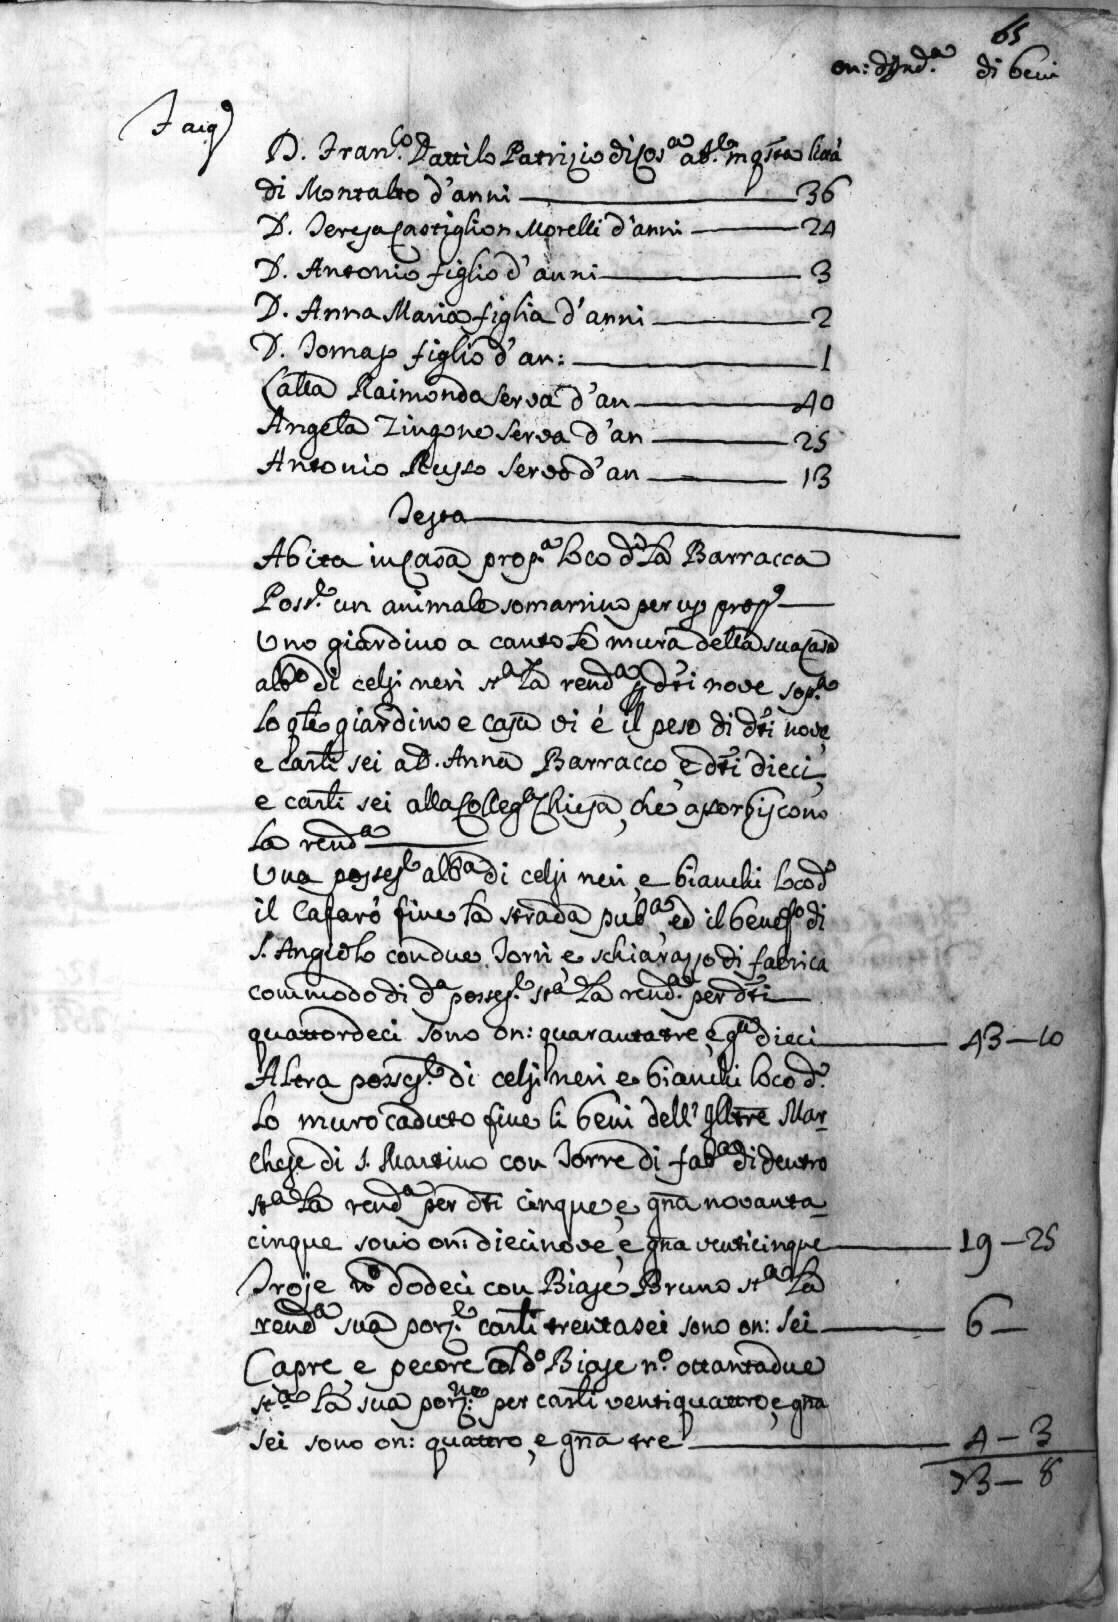 65
on: d'Ind.a di beni
D. Fran.co Dattilo Patrizio di Cos.a ab.e in q.sta Città
di Montalto d'anni 36
D. Teresa Castiglion Morelli d'anni 24
D. Antonio figlio d'anni 3
D. Anna Maria figlia d'anni 2
D. Tomaso figlio d'an: 1
Catta Raimonda serva d'an 40
Angela Zingone serva d'an 25
Antonio Russo servo d'an 13
Testa
Abita in Casa prop.a loco d.o La Barracca
Poss.e un animale somarrino per uso prop.o
Uno giardino a canto le mura della sua Casa
alb.o di celsi neri st.a La rend.a p d.ti nove sop.a
Lo q.le giardino e casa vi è il peso di d.ti nove,
e carli sei a D. Anna Barracco, e d.ti dieci,
e carli sei alla Colleg.a Chiesa, che assorbiscono
La rend.a
Una posses.e alb.a di celsi neri, e bianchi loco d.o
il Cafaro fine la strada pub.a ed il benef.o di
S. Angiolo con due Torri, e schiarazzo di fabrica
commodo di d.a posses.e st.a La rend.a per d.ti
quattordeci sono on: quarantatre, e g.a dieci 43-10
Altra posses.e di celsi neri e bianchi loco d.o
Lo muro caduto fine li beni dell' Illtre Mar-
chese di S. Martino con Torre di fab.a di dentro
st.a La rend.a per d.ti cinque, e gna novanta-
cinque sono on: diecinove, e gna venticinque 19-25
Troje n.o dodeci con Biase Bruno st.a La
rend.a sua porz.e carli trentasei sono on: sei 6-
Capre, e pecore col d.o Biase n.o ottantadue
st.a La sua porz.ne per carli ventiquattro, e gna
sei sono on: quattro, e gna tre 4-3
73-8